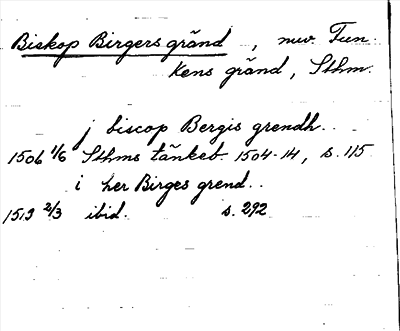 Biskop Birgers gränd, nuv. Fun-
kens gränd, Sthm.
j biscop Bergis grendh..
1506 1/6 Sthms tänkeb. 1504-14, s. 115
i her Birges grend..
1513 2/3 ibid. s. 292